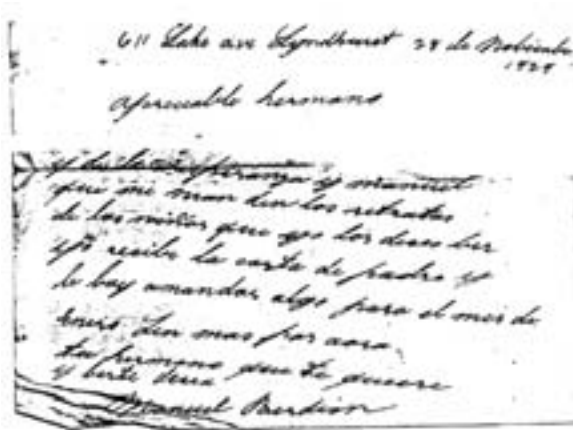 611 Lake ave Lyndhurst 28 de Nobiembre
1929
apreciable hermano
y manuel
que mi man den los retratos
de los niños que yo los deseo ber
yo recibi la carta de padre y
le boy amandar algo para el mes de
enero sin mas por aora
tu hermano que te quiere
y berte desea
Manuel